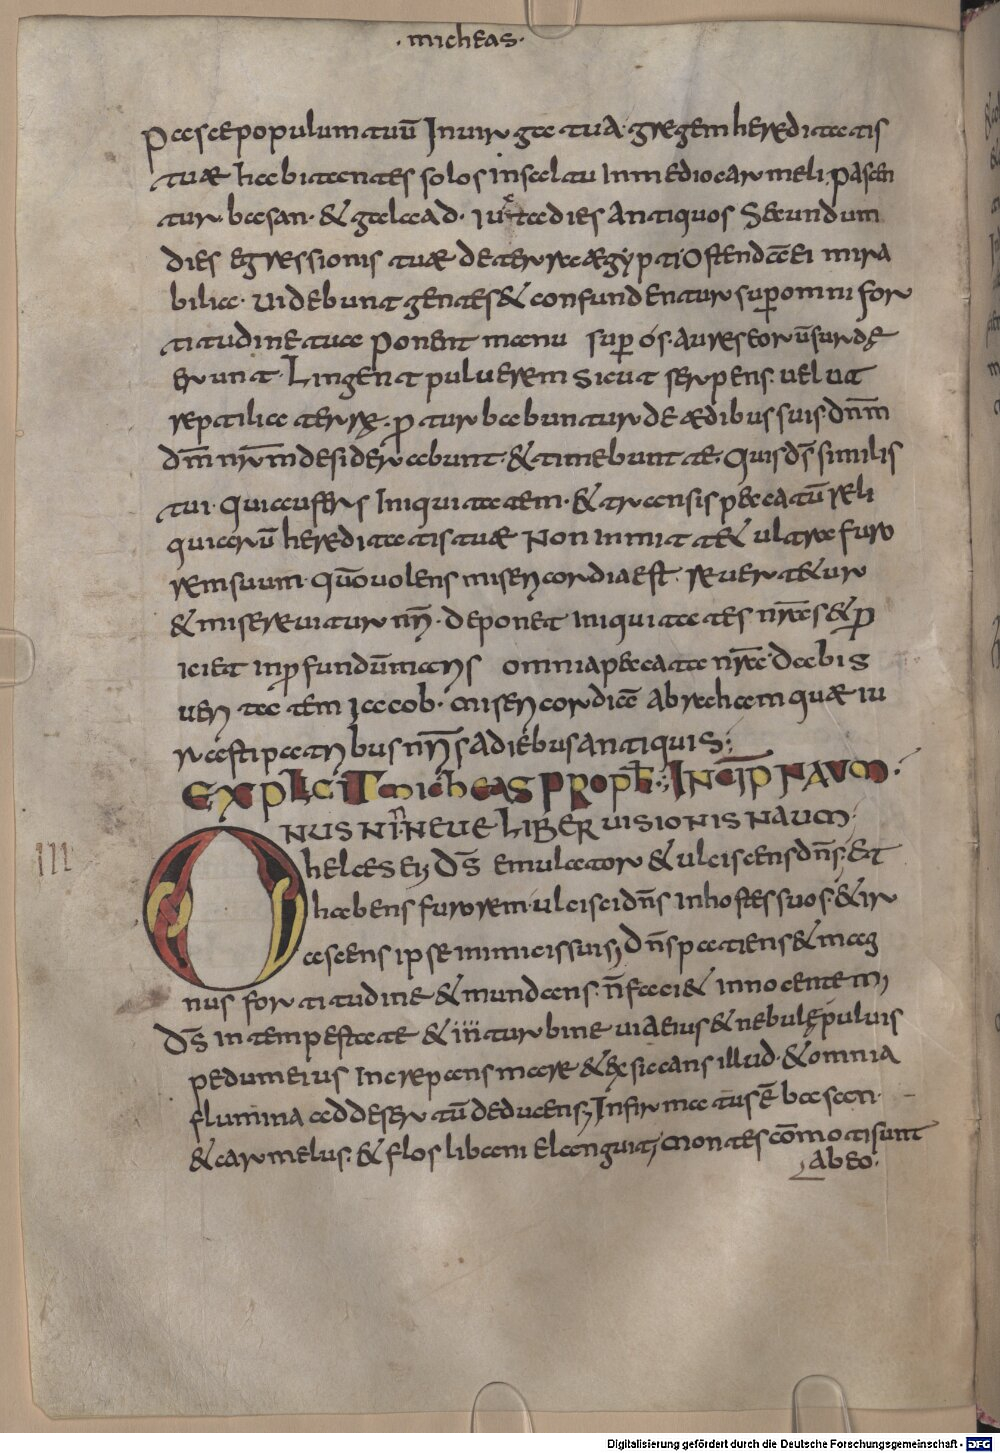 ·micheas·
Pascepopulumtuū Inuirgatua·gregemheredi tatis
tuæ habitantes solos insaltu Inmediocarmeli.pascen
tur basan· & galaad· Iuxtadies Antiquos Secundum
dies egressionis tuæ deterraægypti Ostendāei mira
bilia· uidebunt gentes& confundentursuꝑomni for
titudine tua Ponent manu suꝑ ós· Aureseorūsurdę
erunt· Lingent puluerem sicut serpens· uelut
reptilia terrę· ꝓturbabunturde ædibussuis· dnm̄
dm̄ nr̄m desiderabunt· & timebunt te· Quisds̄ similis
tui· Quiaufers Iniquitatem· & transispeccatū reli
quiarū hereditatistuæ Non inmittet ultrafuro
remsuum· quō uolens misericordiaest· reuertetur
& misereuitur nr̄i· deponet Iniquitates nr̄as&ꝓ
iciet inꝓfundūmaris omniapeccata nr̄a· Dabis
ueritatem Iacob· misericordiā Abrahamquæ iu
rastipatribusnr̄isAdiebusantiquis:,
EXPLICIT micheas PROPH̄·; INCIP̄ NAUM·
ONUS NINEUE LIBER VISIONIS NAUM·
helcesei; Ds̄ emulator & ulciscensdn̄s· Et
habens furorem· ulciscidn̄s Inhostessuos· &ir
ascens ipse inimicissuis; Dn̄spatiens&mag
nus fortitudine &mundans· n̄faciet innocentem;
III
Ds̄ intempestate & in turbine uiAeius&nebulępuluis
pedumeius Increpans mare &exsiccans illud· &omnia
flumina addesertū deducens; Infirmatusē basan·
&carmelus· & flos libani elanguit; montescōmotisunt
Abeo·
Digitalisierung gefördert durch die Deutsche Forschungsgemeinschaft - DFG